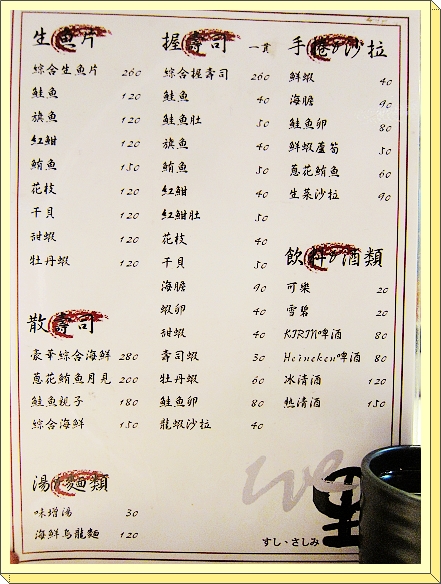 生魚片
綜合生魚片 260
鮭魚 120
旗魚 120
紅魽 120
鮪魚 150
花枝 120
干貝 120
甜蝦 120
牡丹蝦 120
散壽司
豪華綜合海鮮 280
蔥花鮪魚月見 200
鮭魚親子 180
綜合海鮮 150
湯&麵類
味增湯 30
海鮮烏龍麵 120
握壽司 一貫
綜合握壽司 260
鮭魚 40
鮭魚肚 50
旗魚 40
鮪魚 50
紅魽 40
紅魽肚 50
花枝 40
干貝 50
海膽 90
蝦卵 40
甜蝦 40
壽司蝦 30
牡丹蝦 60
鮭魚卵 80
龍蝦沙拉 40
手捲&沙拉
鮮蝦 40
海膽 90
鮭魚卵 80
鮮蝦蘆筍 50
蔥花鮪魚 60
生菜沙拉 90
飲料&酒類
可樂 20
雪碧 20
KIRIN啤酒 80
Heineken啤酒 80
冰清酒 120
熱清酒 150
we
すし・さしみ